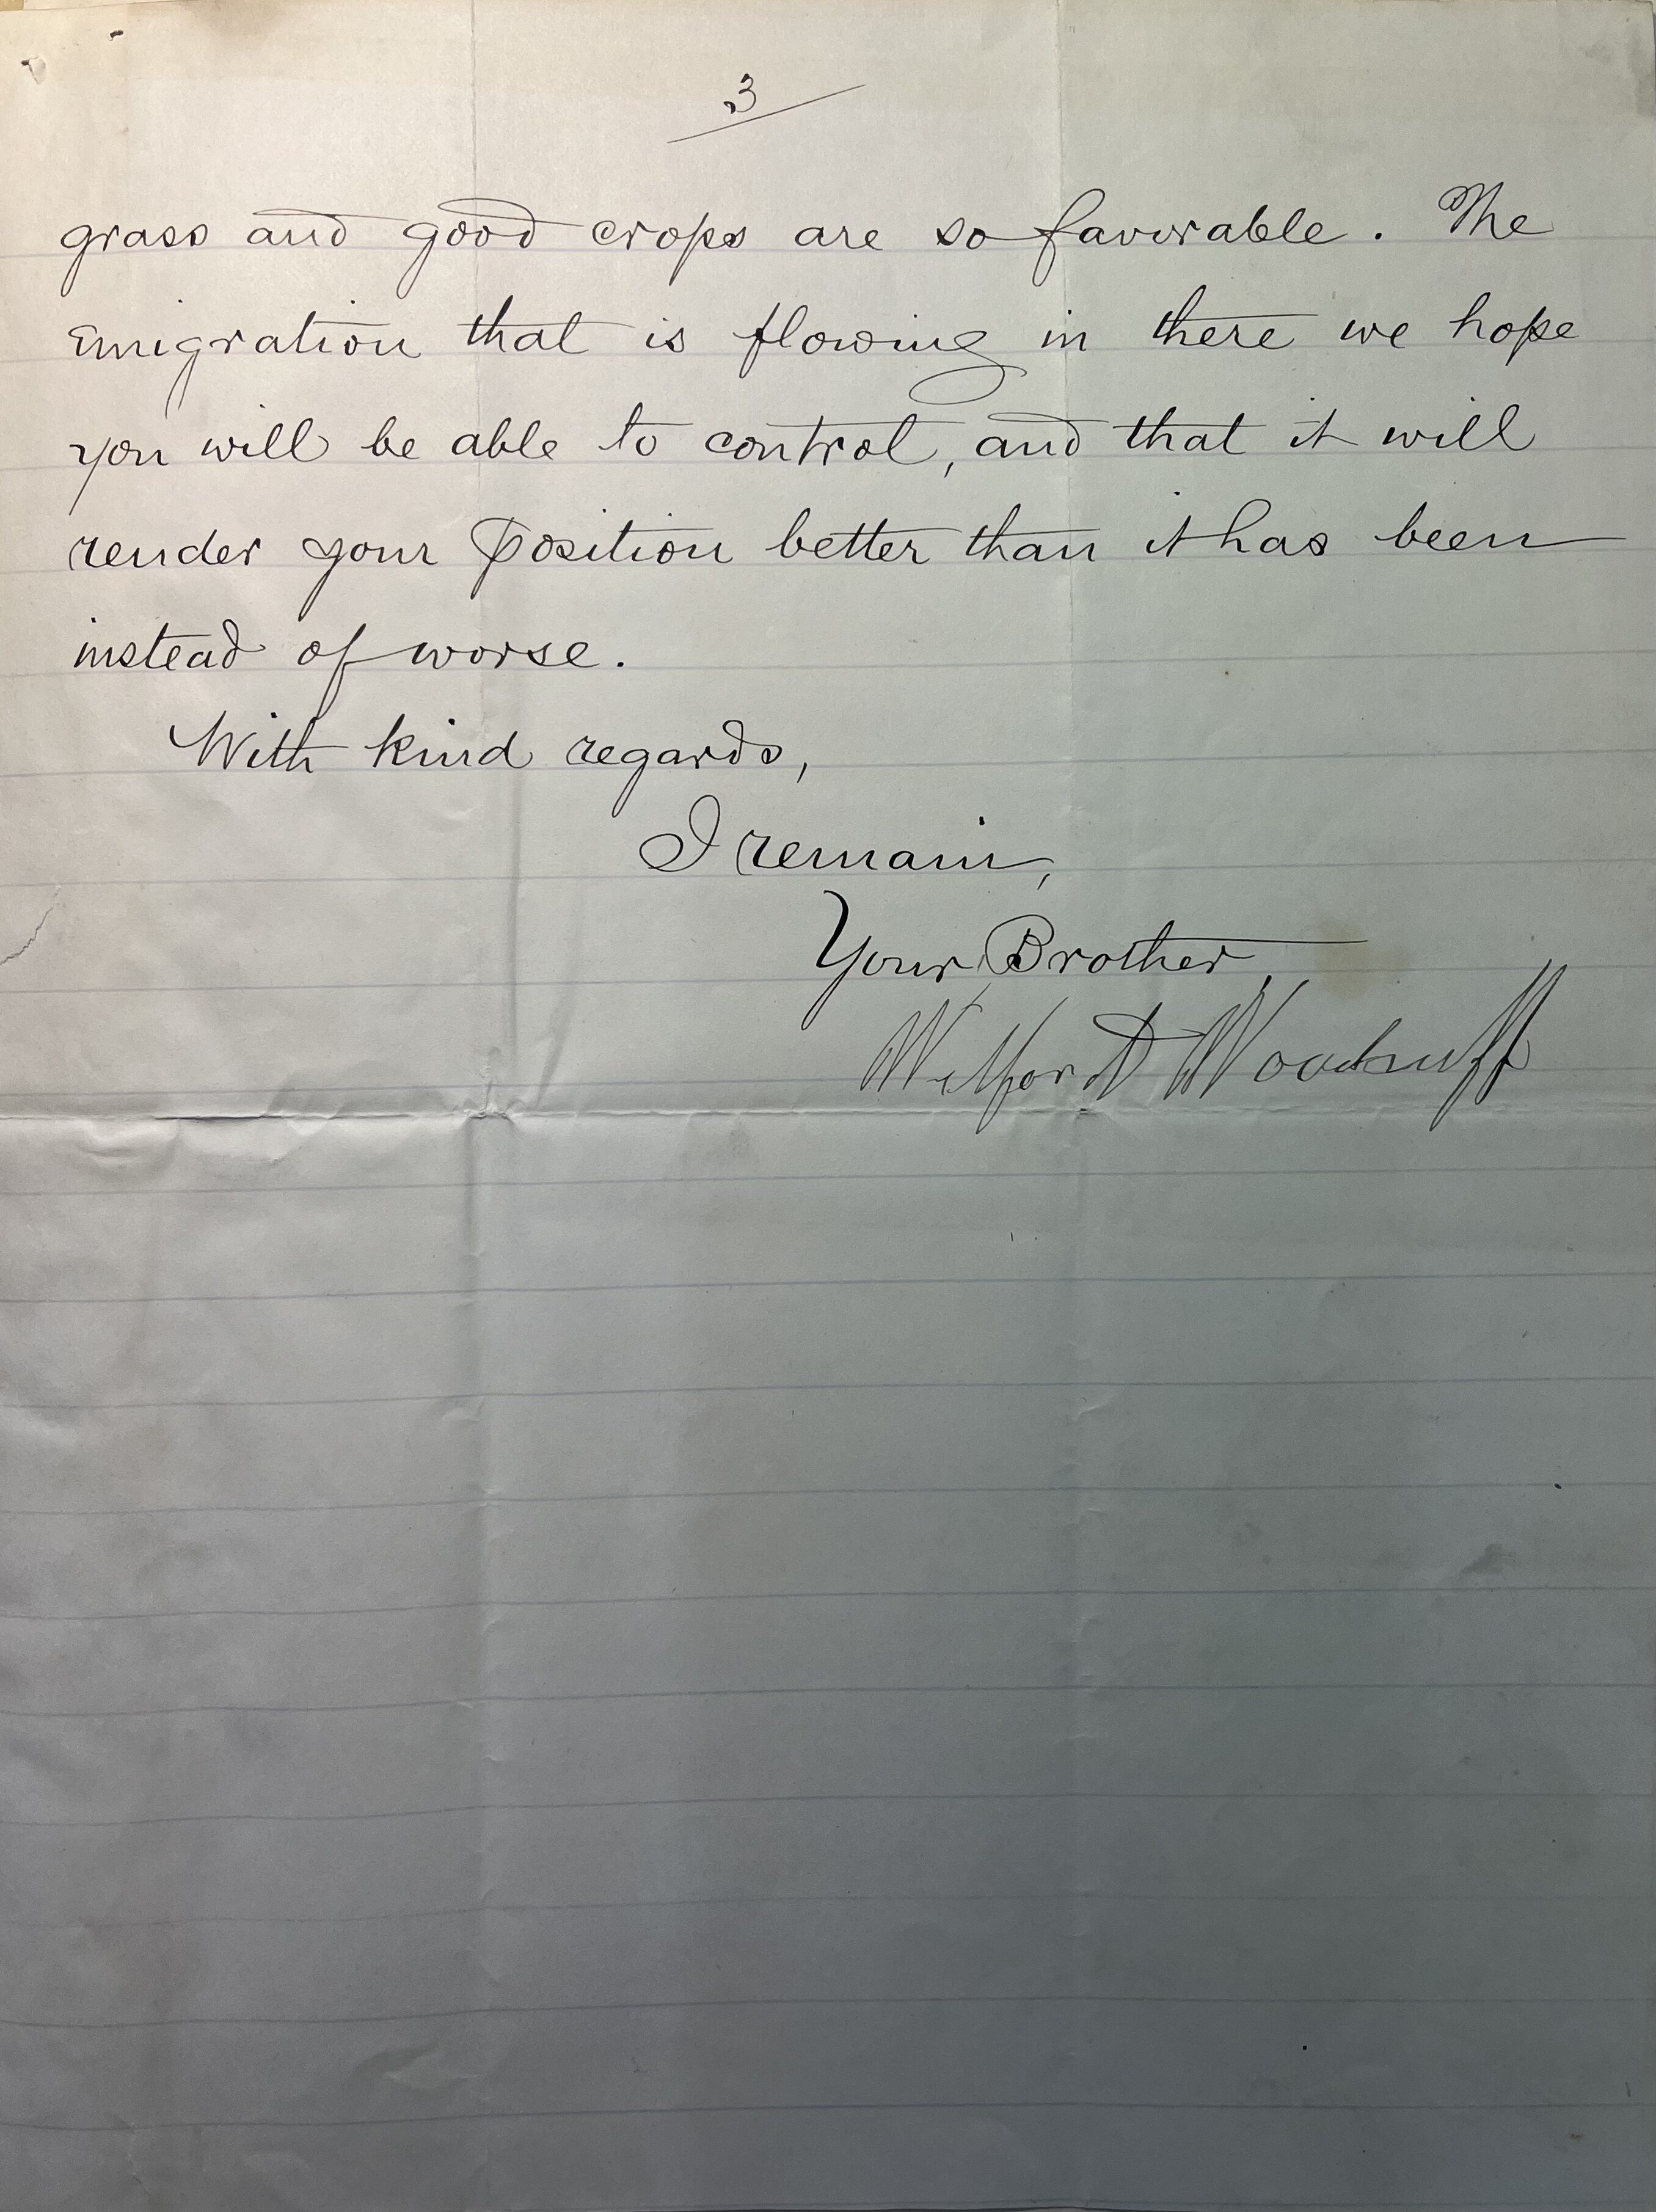 3
grass and good crops are so favorable. The
Emigration that is flowing in there we hope
you will be able to control, and that it will
render your position better than it has been
instead of worse.
With kind regards,
I remain,
Your Brother,
Wilford Woodruff